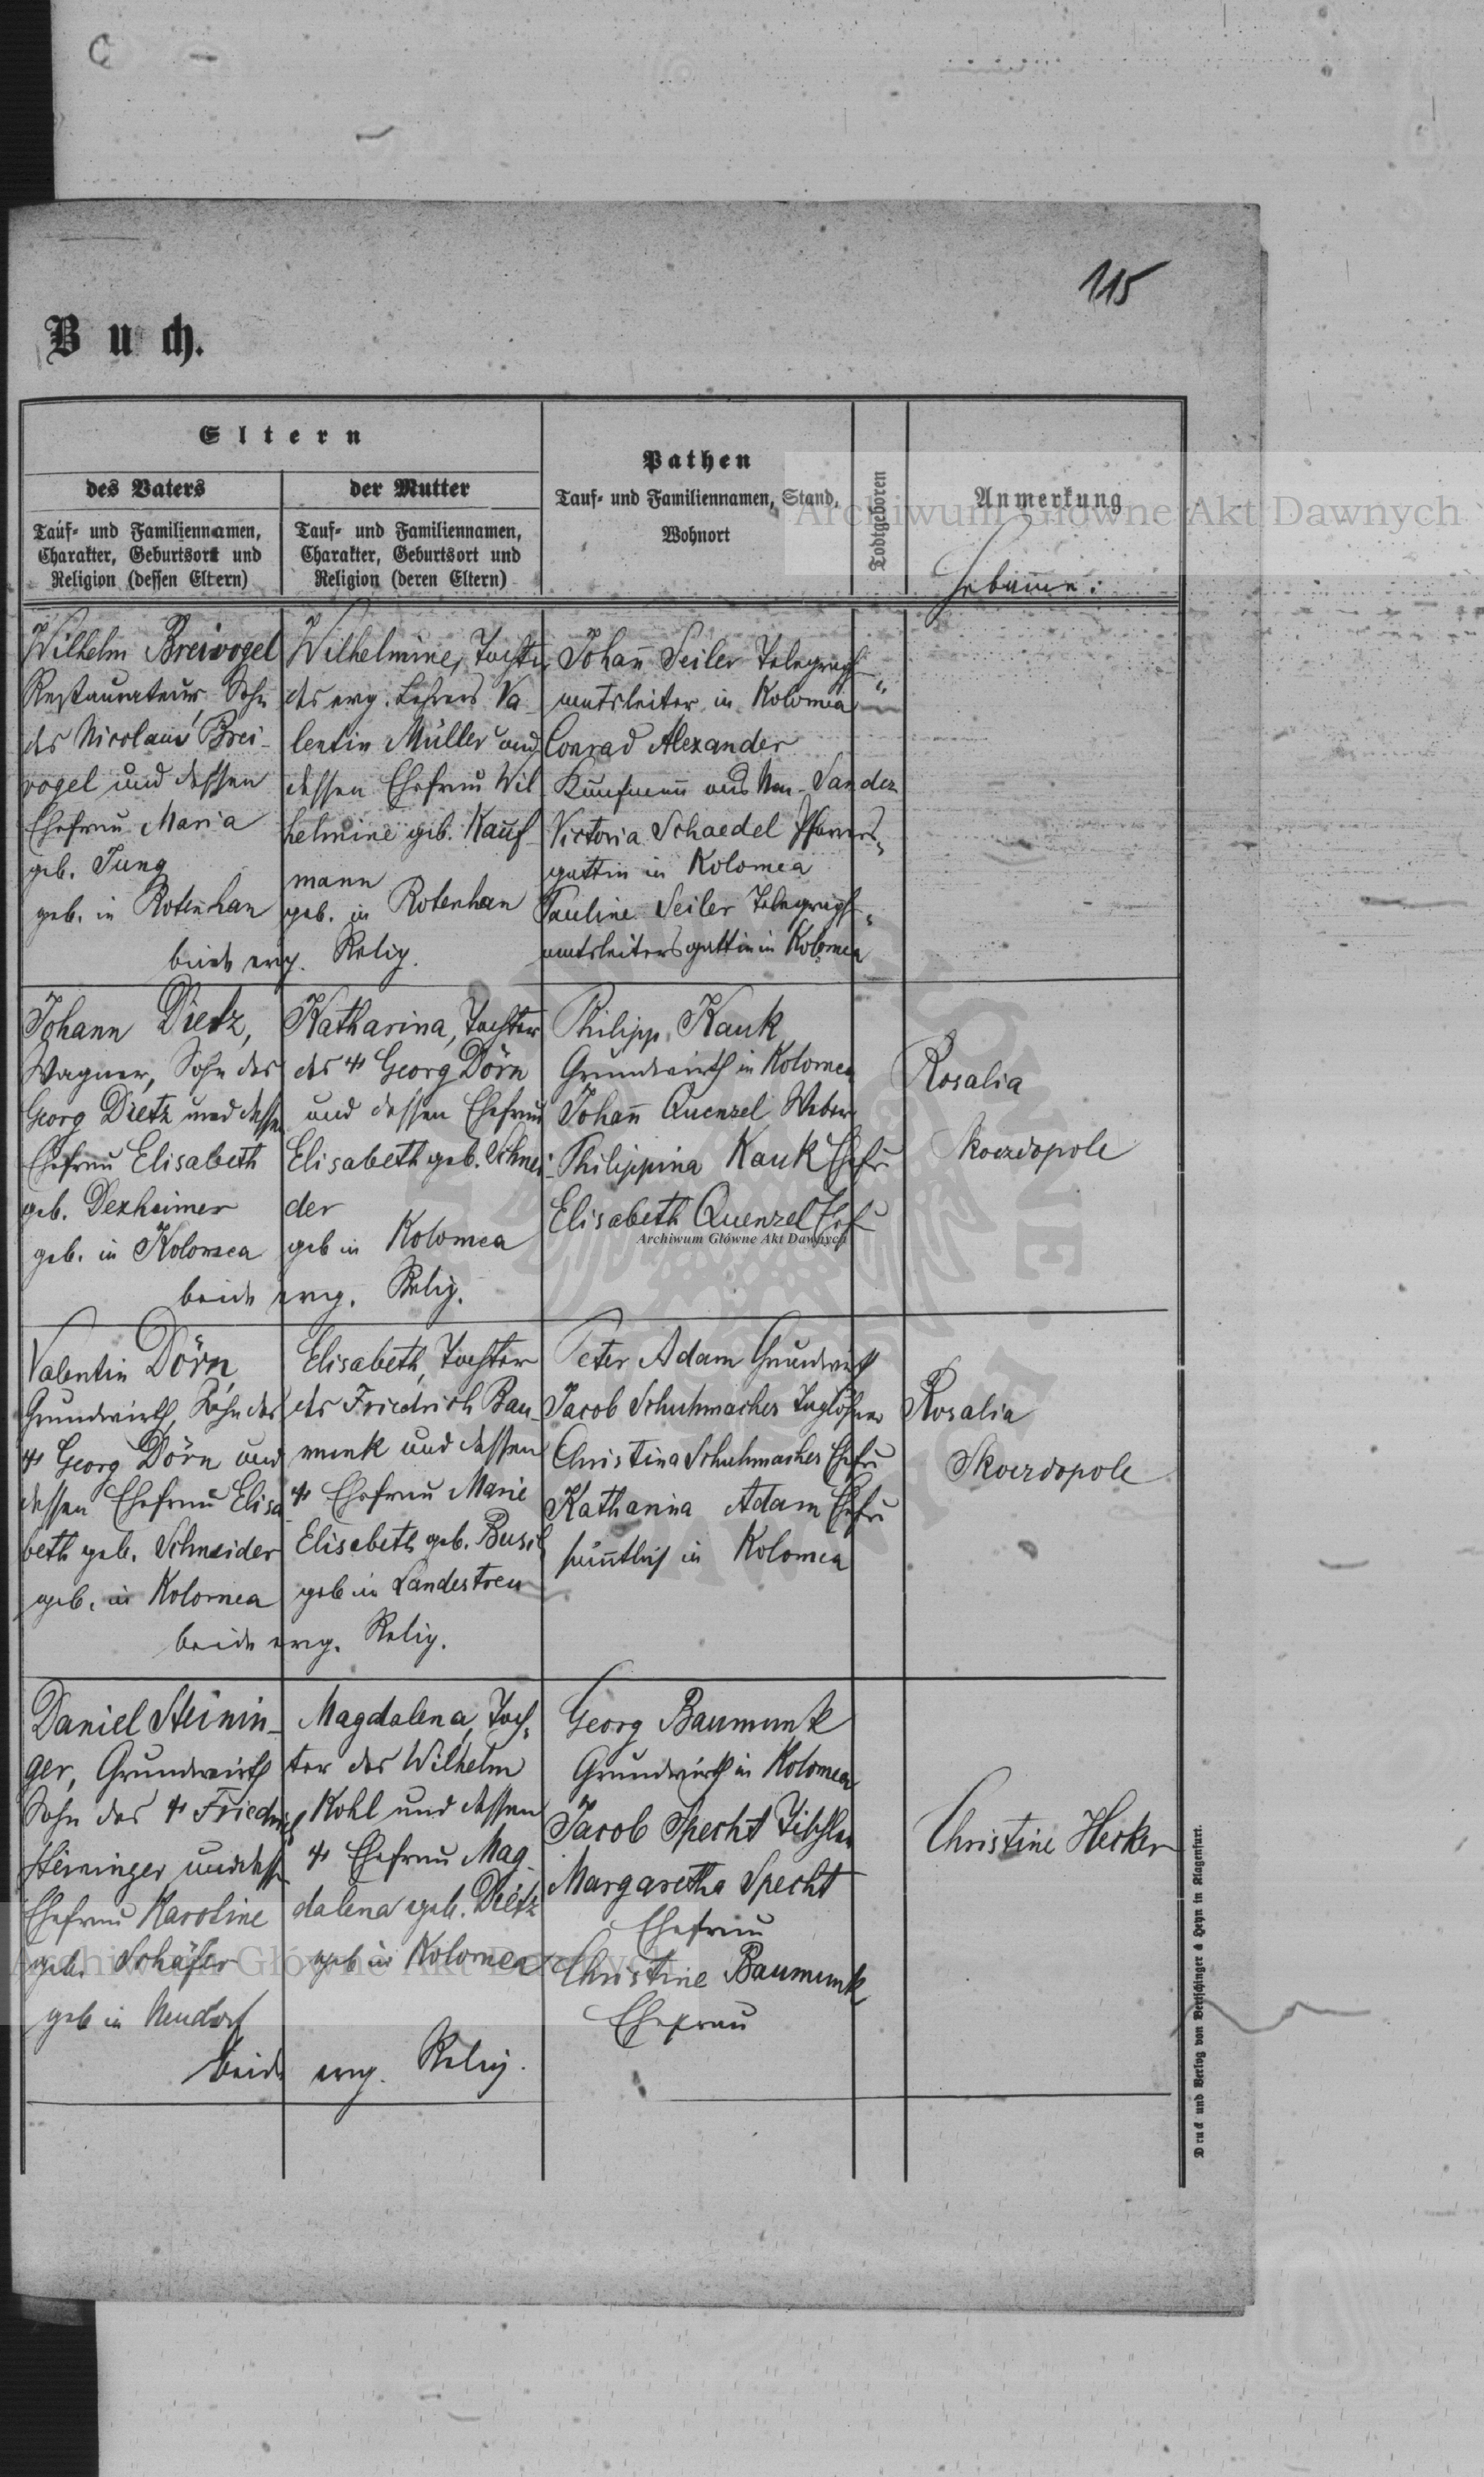 115
Buch.
Eltern
des Vaters
Tauf- und Familiennamen,
Charakter, Geburtsort und
Religion (dessen Eltern)
der Mutter
Tauf- und Familiennamen,
Charakter, Geburtsort und
Religion (deren Eltern)
Pathen
Tauf- und Familiennamen, Stand,
Wohnort
Todtgeboren
Anmerkung
Hebamme:
Wilhelm Breivogel
Restaurateur, Sohn
des Nicolaus Brei-
vogel und dessen
Ehefrau Maria
geb. Jung
geb. in Rotenhan
Wilhelmine, Tochter
des evg. Lehrers Va-
lentin Müller und
dessen Ehefrau Wil-
helmine geb. Kauf-
mann
geb. in Rotenhan
beide evg. Relig.
Johann Seiler Telegraph-
amtsleiter in Kolomea
Conrad Alexander
Kaufmann aus Neu-Sandez
Victoria Schaedel Pfarrers-
gattin in Kolomea
Pauline Seiler Telegraph-
amtsleitersgattin in Kolomea
Johann Dietz,
Wagner, Sohn des
Georg Dietz und dessen
Ehefrau Elisabeth
geb. Dexheimer
geb. in Kolomea
Katharina, Tochter
des Georg Dörn
und dessen Ehefrau
Elisabeth geb. Schnei-
der
geb in Kolomea
beide evg. Relig.
Philipp Kauk
Grundwirth in Kolomea
Johann Quenzel Weber
Philippina Kauk Ehefr
Elisabeth Quenzel Ehefr
Rosalia
Skoezdopole
Valentin Dörn,
Grundwirth, Sohn des
Georg Dörn und
dessen Ehefrau Elisa-
beth geb. Schneider
geb. in Kolomea
Elisabeth, Tochter
des Friedrich Bau-
munk und dessen
Ehefrau Marie
Elisabeth geb.
geb in Landestreu
beide evg. Relig.
Peter Adam Grundwirth
Jacob Schuhmacher Taglöhner
Christina Schuhmacher Ehefr
Katharina Adam Ehefr
sämtlich in Kolomea
Rosalia
Skoezdopole
Daniel Steinin-
ger, Grundwirth
Sohn des Friedrich
Steininger und dessen
Ehefrau Karoline
geb. Schäfer
geb in Neudorf
Magdalena, Toch-
ter des Wilhelm
Kohl und dessen
Ehefrau Mag-
dalena geb. Dietz
geb in Kolomea
beide evg. Relig.
Georg Baumunk
Grundwirth in Kolomea
Jacob Specht Tischler
Margaretha Specht
Ehefrau
Christine Baumunk,
Ehefrau
Christine Hecker
Druck und Verlag von Bertschinger & Heyn in Klagenfurt.
Archiwum Główne Akt Dawnych
Archiwum Główne Akt Dawnych
Archiwum Główne Akt Dawnych